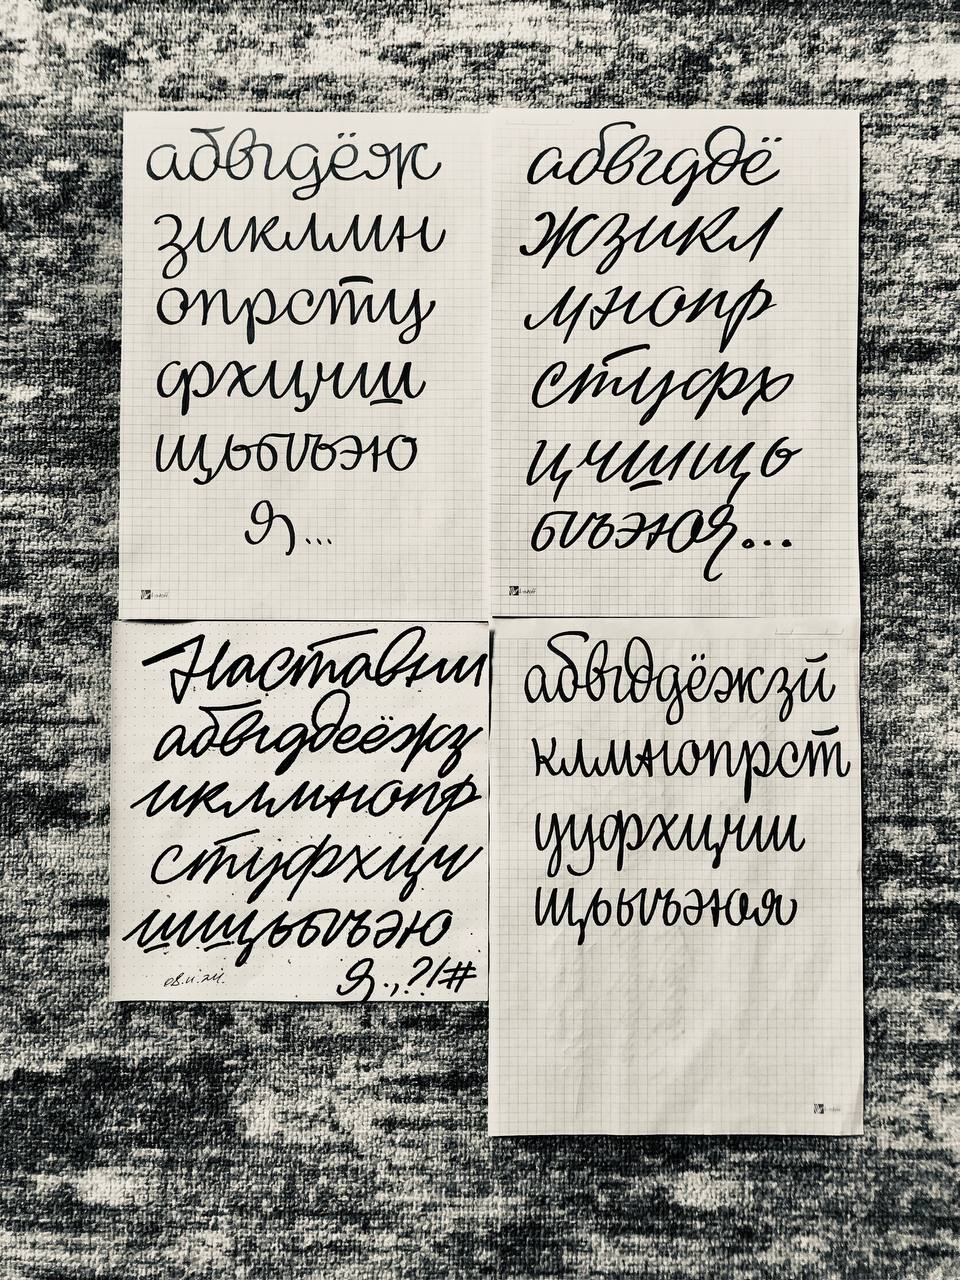 абвгдёж
зиклмн
опрсту
фхцчш
щьыъэю
я...
абвгдё
жзикл
мнопр
стуфх
цчшщь
ыъэюя...
Наставни
абвгддеёжз
иклмнопр
стуфхцч
шщьыъэю
я.,?!#
абвгддёжзй
клмнопрст
ууфхцчш
щьыъэюя